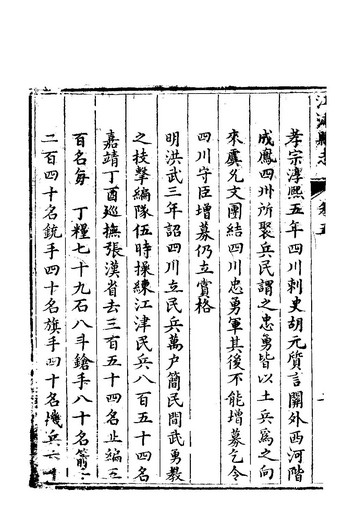 江津縣志 卷五
孝宗淳熙五年四川刺史胡元質言關外西河階
成鳳四州所聚兵民謂之忠勇皆以土兵為之向
來虞允文團結四川忠勇軍其後不能增募乞令
四川守臣增募仍立賞格
明洪武三年詔四川立民兵萬戶簡民間武勇教
之技擊編隊伍時操練江津民兵八百五十四名
嘉靖丁酉巡撫張漢省去三百五十四名止編五
百名每 丁糧七十九石八斗鎗手八十名箭
二百四十名銃手四十名旗手四十名機兵六十